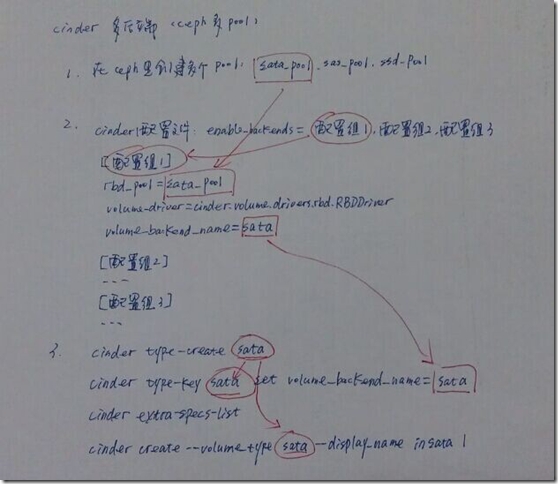 cinder 多后端 (ceph 多 pool)
1. 在 ceph 里创建多个 pool: sata_pool . sas_pool . ssd_pool
2. cinder 配置文件: enable_backends = 配置组1, 配置组2, 配置组3
[配置组1]
rbd_pool = sata_pool
volume_driver = cinder.volume.drivers.rbd.RBDDriver
volume_backend_name = sata
[配置组2]
---
[配置组3]
---
3. cinder type-create sata
cinder type-key sata set volume_backend_name = sata
cinder extra-specs-list
cinder create --volume_type sata --display_name insata 1